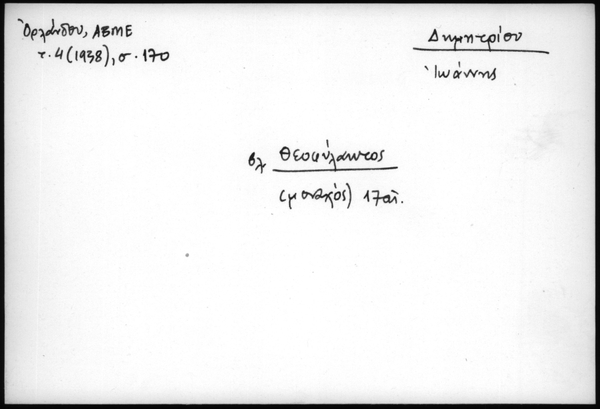 Ὀρλάνδου, ΑΒΜΕ
τ. 4 (1938), σ. 170
Δημητρίου
Ἰωάννης
βλ Θεοφύλακτος
(μοναχός) 17 αἰ.